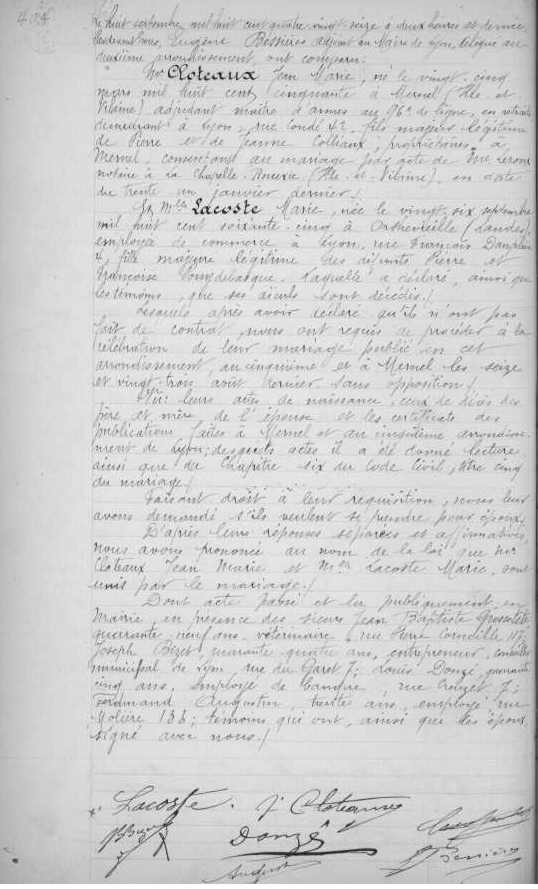 Le huit septembre, mil huit cent quatre vingt seize à deux heures et demie,
devant nous, Eugène Bessières adjoint au Maire de Lyon, délégué au
deuxième arrondissement, ont comparu:
Mr Cloteaux Jean Marie, né le vingt cinq
mars mil huit cent cinquante à Mernel (Ille et
Vilaine) adjudant maître d'armes au 96e de ligne, en retraite
demeurant à Lyon, rue Condé 42, fils majeur légitime
de Pierre et de Jeanne Colliaux, propriétaires à
Mernel, consentant au mariage par acte de Me
notaire à la Chapelle Bouexic (Ille et Vilaine), en date
du trente un janvier dernier./
Et Mlle Lacoste Marie, née le vingt six septembre
mil huit cent soixante cinq à (Landes)
employée de commerce à Lyon, rue François Dauphin
4, fille majeure légitime des défunts Pierre et
Françoise Laquelle a déclaré, ainsi que
les témoins, que ses aïeuls sont décédés./
Lesquels après avoir déclaré qu'ils n'ont pas
fait de contrat, nous ont requis de procéder à la
célébration de leur mariage publié en cet
arrondissement, au cinquième et à Mernel les seize
et vingt trois août dernier sans opposition./
Vu: leurs actes de naissance, ceux de décès des
père et mère de l'épouse et les certificats des
publications faites à Mernel et au cinquième arrondisse-
ment de Lyon; desquels actes il a été donné lecture
ainsi que du Chapitre six du Code Civil, titre cinq
du mariage./
Faisant droit à leur réquisition, nous leur
avons demandé s'ils veulent se prendre pour époux,
D'après leurs réponses séparées et affirmatives,
nous avons prononcé au nom de la loi que Mr
Cloteaux Jean Marie et Mlle Lacoste Marie, sont
unis par le mariage./
Dont acte passé et lu publiquement en
Mairie, en présence des sieurs Jean Baptiste
quarante neuf ans, vétérinaire, rue Pierre Corneille
Joseph Bizet, quarante quatre ans, entrepreneur, conseiller
municipal de Lyon, rue du Garet 7; Louis Donzé, quarante
cinq ans, employé de banque, rue Cruzet 7;
Ferdinand Augustin, trente ans, employé, rue
Molière 138; témoins qui ont, ainsi que les époux
signé avec nous./
Lacoste. J Cloteaux
Bizet Donzé
August Bessières